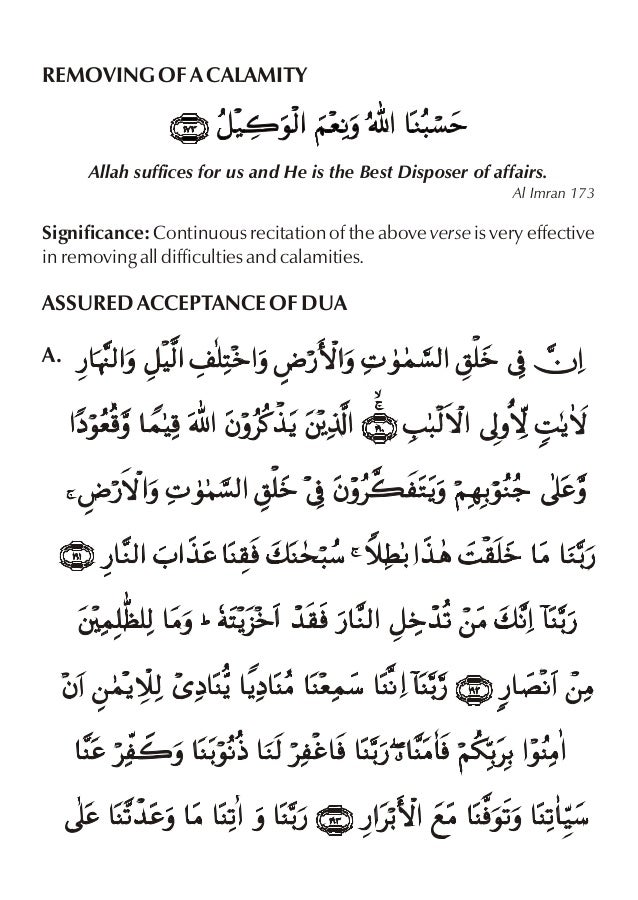 REMOVING OF A CALAMITY
حَسْبُنَا اللهُ وَنِعْمَ الْوَكِيْلُ ﴿١٧٣﴾
Allah suffices for us and He is the Best Disposer of affairs.
Al Imran 173
Significance: Continuous recitation of the above verse is very effective
in removing all difficulties and calamities.
ASSURED ACCEPTANCE OF DUA
A. اِنَّ فِيْ خَلْقِ السَّمٰوٰتِ وَالْاَرْضِ وَاخْتِلَافِ الَّيْلِ وَالنَّهَارِ
لَاٰيٰتٍ لِّاُولِي الْاَلْبٰبِ ﴿١٩٠﴾ۚۙ الَّذِيْنَ يَذْكُرُوْنَ اللهَ قِيٰمًا وَّقُعُوْدًا
وَّعَلٰى جُنُوْبِهِمْ وَيَتَفَكَّرُوْنَ فِيْ خَلْقِ السَّمٰوٰتِ وَالْاَرْضِۚ
رَبَّنَا مَا خَلَقْتَ هٰذَا بَاطِلًاۚ سُبْحٰنَكَ فَقِنَا عَذَابَ النَّارِ ﴿١٩١﴾
رَبَّنَآ اِنَّكَ مَنْ تُدْخِلِ النَّارَ فَقَدْ اَخْزَيْتَهٗؕ وَمَا لِلظّٰلِمِيْنَ
مِنْ اَنْصَارٍ ﴿١٩٢﴾ رَبَّنَآ اِنَّنَا سَمِعْنَا مُنَادِيًا يُّنَادِيْ لِلْاِيْمَانِ اَنْ
اٰمِنُوْا بِرَبِّكُمْ فَاٰمَنَّاۖ رَبَّنَا فَاغْفِرْ لَنَا ذُنُوْبَنَا وَكَفِّرْ عَنَّا
سَيِّاٰتِنَا وَتَوَفَّنَا مَعَ الْاَبْرَارِ ﴿١٩٣﴾ رَبَّنَا وَ اٰتِنَا مَا وَعَدْتَّنَا عَلٰى